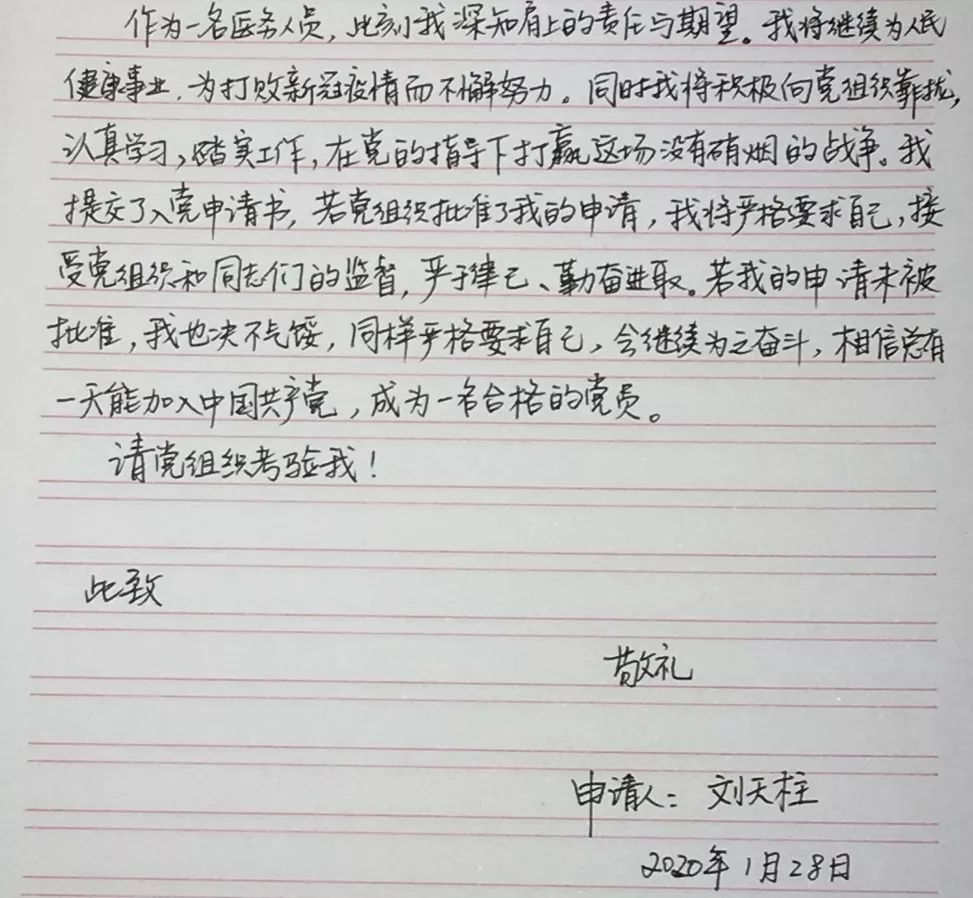 作为一名医务人员，此刻我深知肩上的责任与期望。我将继续为人民
健康事业，为打败新冠疫情而不懈努力。同时我将积极向党组织靠拢，
认真学习，踏实工作，在党的指导下打赢这场没有硝烟的战争。我
提交了入党申请书，若党组织批准了我的申请，我将严格要求自己，接
受党组织和同志们的监督，严于律己、勤奋进取。若我的申请未被
批准，我也决不气馁，同样严格要求自己，会继续为之奋斗，相信总有
一天能加入中国共产党，成为一名合格的党员。
请党组织考验我！
此致
敬礼
申请人：刘天柱
2020年1月28日